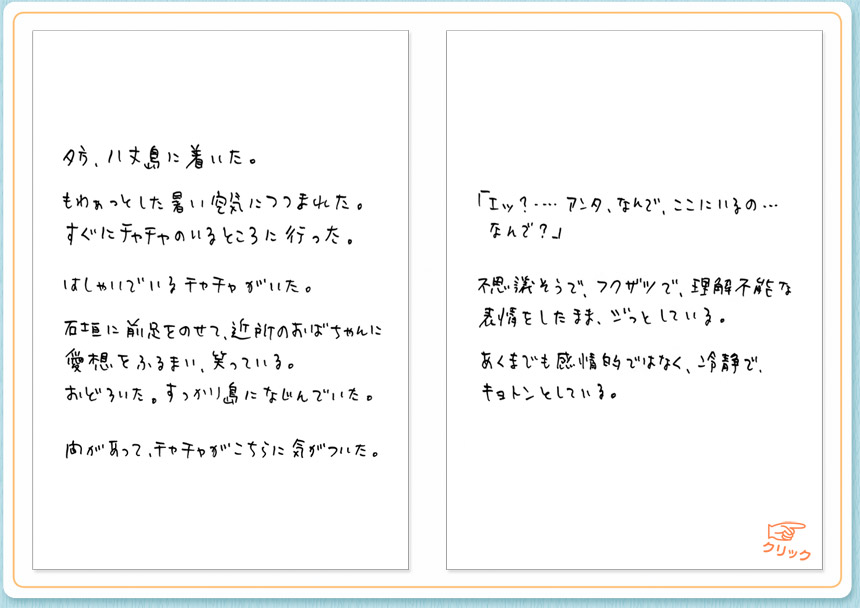 夕方、八丈島に着いた。
もわぁっとした暑い空気につつまれた。
すぐにチャチャのいるところに行った。
はしゃいでいるチャチャがいた。
石垣に前足をのせて、近所のおばちゃんに
愛想をふるまい、笑っている。
おどろいた。すっかり島になじんでいた。
間があって、チャチャがこちらに気がついた。
「エッ？‥‥アンタ、なんで、ここにいるの…
なんで？」
不思議そうで、フクザツで、理解不能な
表情をしたまま、ジっとしている。
あくまでも感情的ではなく、冷静で、
キョトンとしている。
クリック